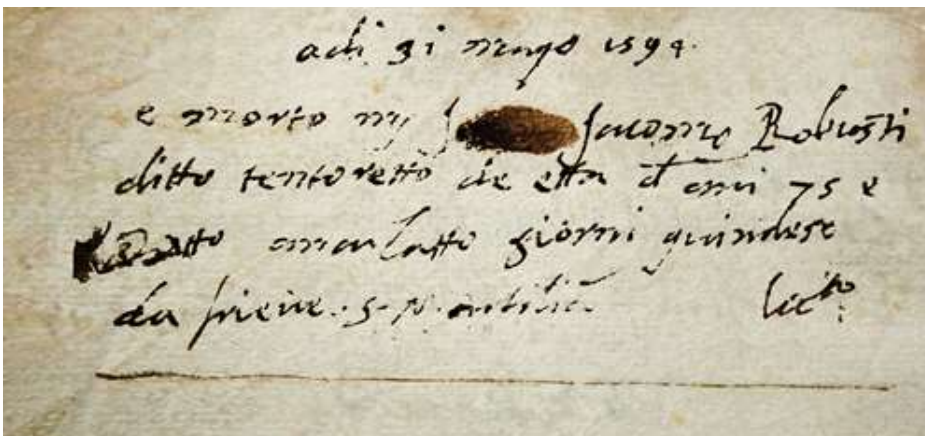 adi 31 mago 1594.
e morto my Jacomo Robusti
ditto tentoretto de etta d anni 75 e
statto amalatto giorni quindese
da frieve. S. M.
lic.to